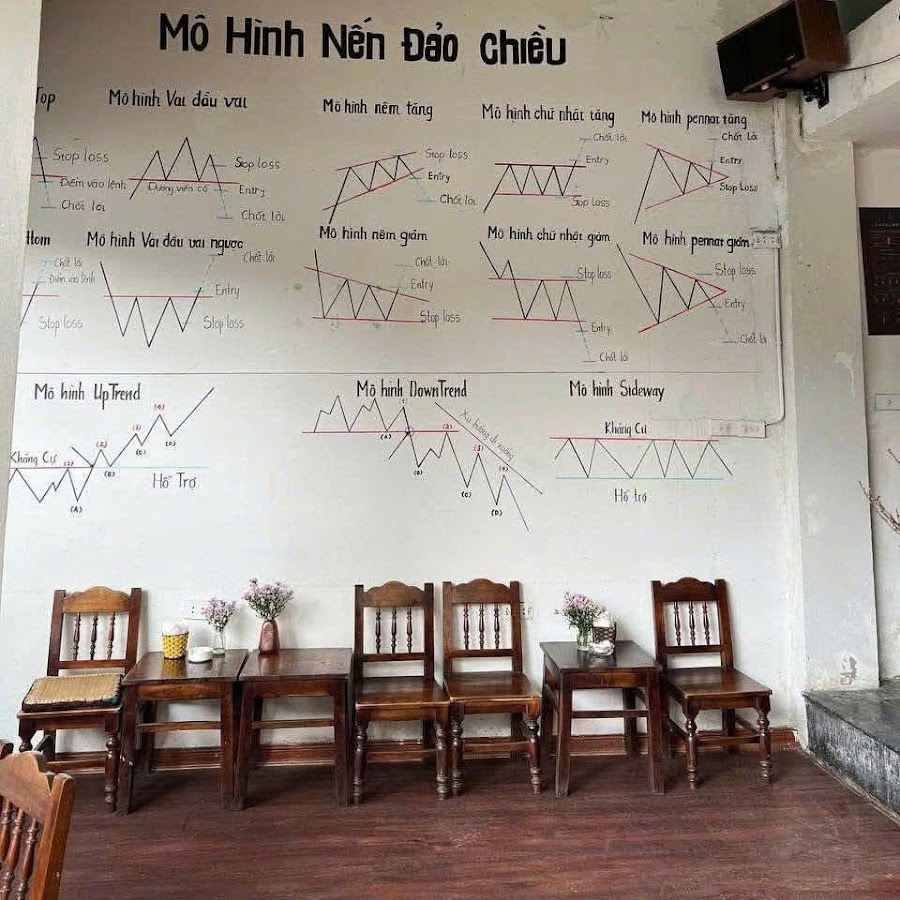 Mô Hình Nến Đảo chiều
Top
Mô hình Vai đầu vai
Mô hình nêm tăng
Mô hình chữ nhật tăng
Mô hình pennat tăng
Stop loss
Điểm vào lệnh
Chốt lời
Stop loss
Đường viền cổ
Entry
Chốt lời
Stop loss
Entry
Chốt lời
Chốt lời
Entry
Stop loss
Chốt lời
Entry
Stop Loss
ttom
Mô hình Vai đầu vai ngược
Mô hình nêm giảm
Mô hình chữ nhật giảm
Mô hình pennat giảm
Chốt lời
Điểm vào lệnh
Stop loss
Chốt lời
Entry
Stop loss
Chốt lời
Entry
Stop loss
Stop loss
Entry
Chốt lời
Stop loss
Entry
Chốt lời
Mô hình UpTrend
Mô hình DownTrend
Mô hình Sideway
Kháng Cự
(2)
(A)
(2)
(B)
(3)
(C)
(4)
(D)
Hỗ Trợ
(1)
(A)
(B)
(2)
(3)
(C)
(4)
(D)
Xu hướng đi xuống
Kháng Cự
Hỗ trợ